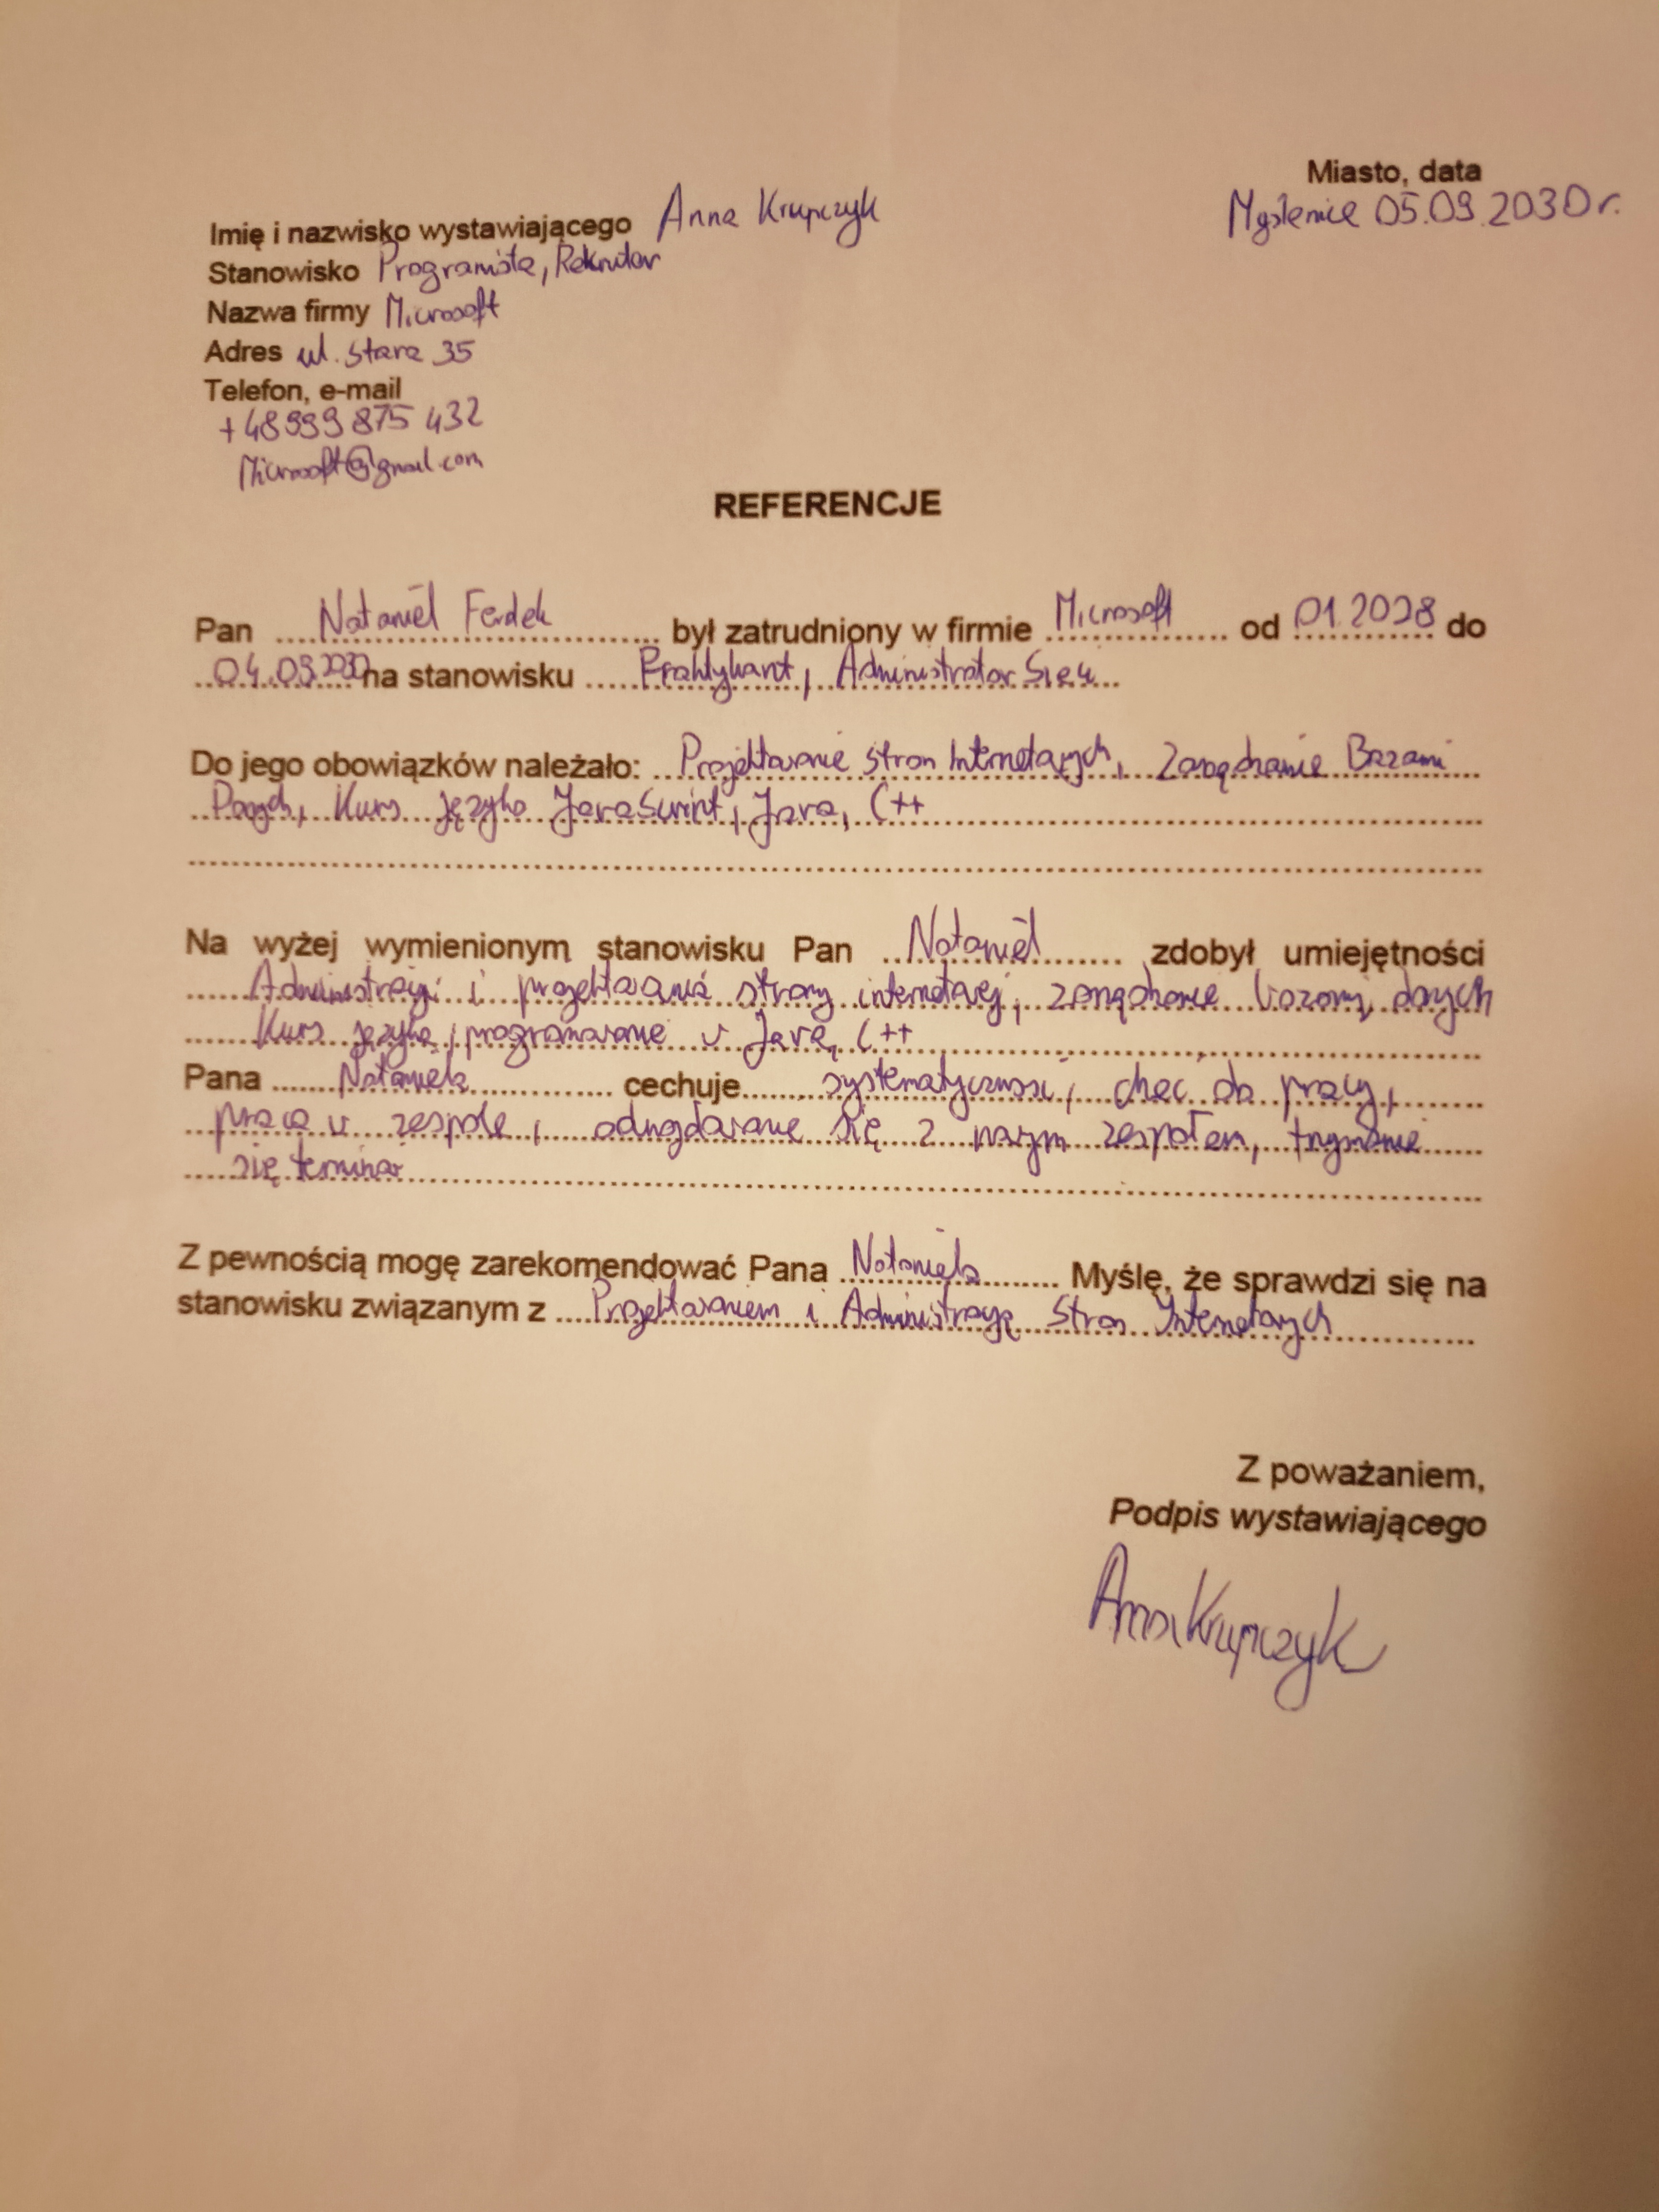 Miasto, data
Myślenice 05.09.2030r.
Imię i nazwisko wystawiającego Anna Krupczyk
Stanowisko Programista, Rekrutor
Nazwa firmy Microsoft
Adres ul. Stara 35
Telefon, e-mail
+48 999 875 432
Microsoft@gmail.com
REFERENCJE
Pan Nataniel Ferdek był zatrudniony w firmie Microsoft od 01.2028 do
04.09.2030 na stanowisku Praktykant, Administrator Sieci
Do jego obowiązków należało: Projektowanie stron Internetowych, Zarządzanie Bazami
Kurs języka Java, C++
Na wyżej wymienionym stanowisku Pan Nataniel zdobył umiejętności
Administracji i projektowania strony internetowej, zarządzanie bazami danych
Kurs języka, programowanie w Java, C++
Pana Nataniela cechuje systematyczność, chęć do pracy,
praca w zespole, się z naszym zespołem, trzymanie
się terminów
Z pewnością mogę zarekomendować Pana Nataniela Myślę, że sprawdzi się na
stanowisku związanym z Projektowaniem i Administracją Stron Internetowych
Z poważaniem,
Podpis wystawiającego
Anna Krupczyk